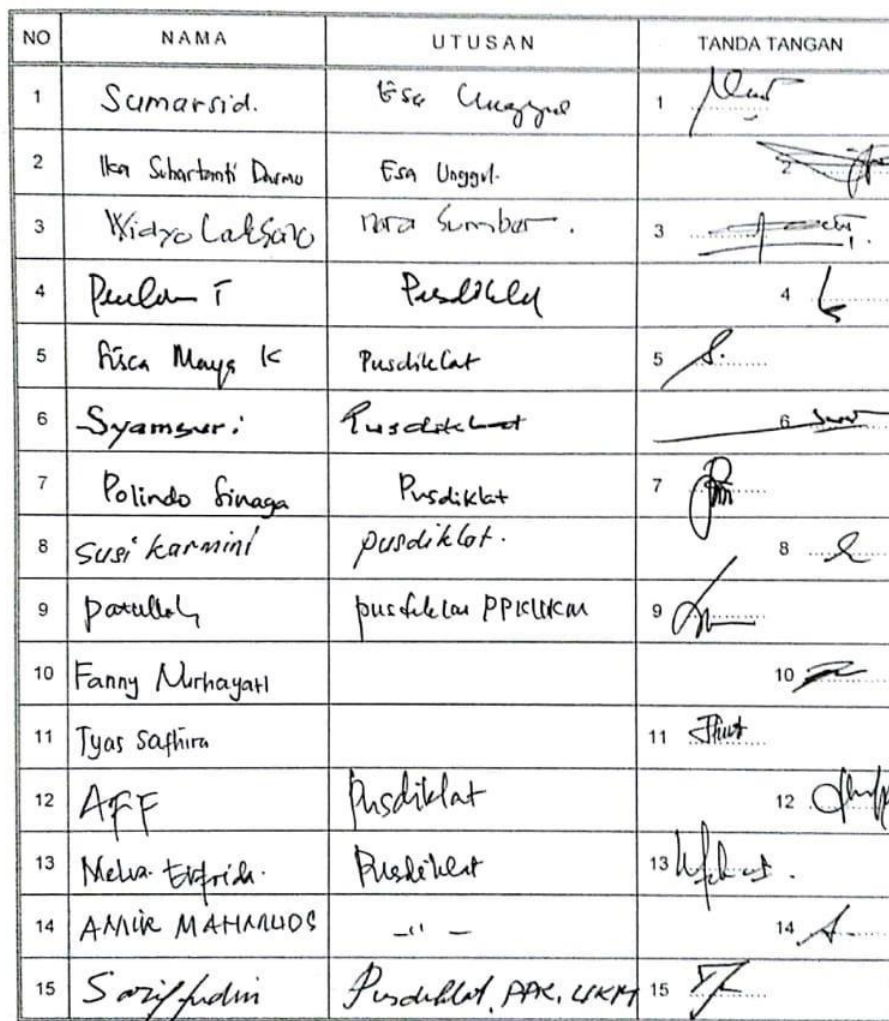 NO NAMA UTUSAN TANDA TANGAN
1 Sumarsid. Esa Unggul 1
2 Ika Suhartanti Darmo Esa Unggul. 2
3 Widyo Laksono nara sumber. 3
4 T Pusdiklat 4
5 Sisca Maya K Pusdiklat 5
6 Syamsuri Pusdiklat 6
7 Polindo Sinaga Pusdiklat 7
8 Susi Karmini pusdiklat. 8
9 Patullah pusdiklat PPKUKM 9
10 Fanny Nurhayati 10
11 Tyas Safhira 11
12 AFF Pusdiklat 12
13 Melva Pusdiklat 13
14 AMIR MAHMUDS —"— 14
15 Pusdiklat, PPK, UKM 15